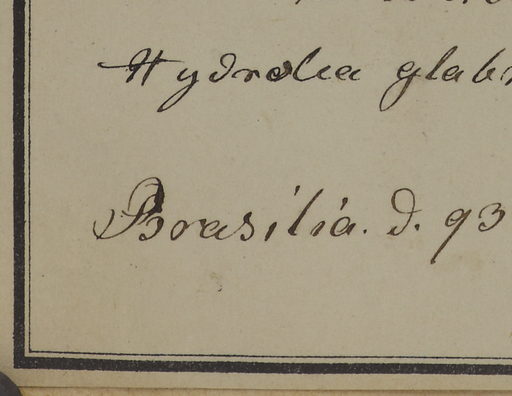 Hydrolea glab
Brasilia. d. 93